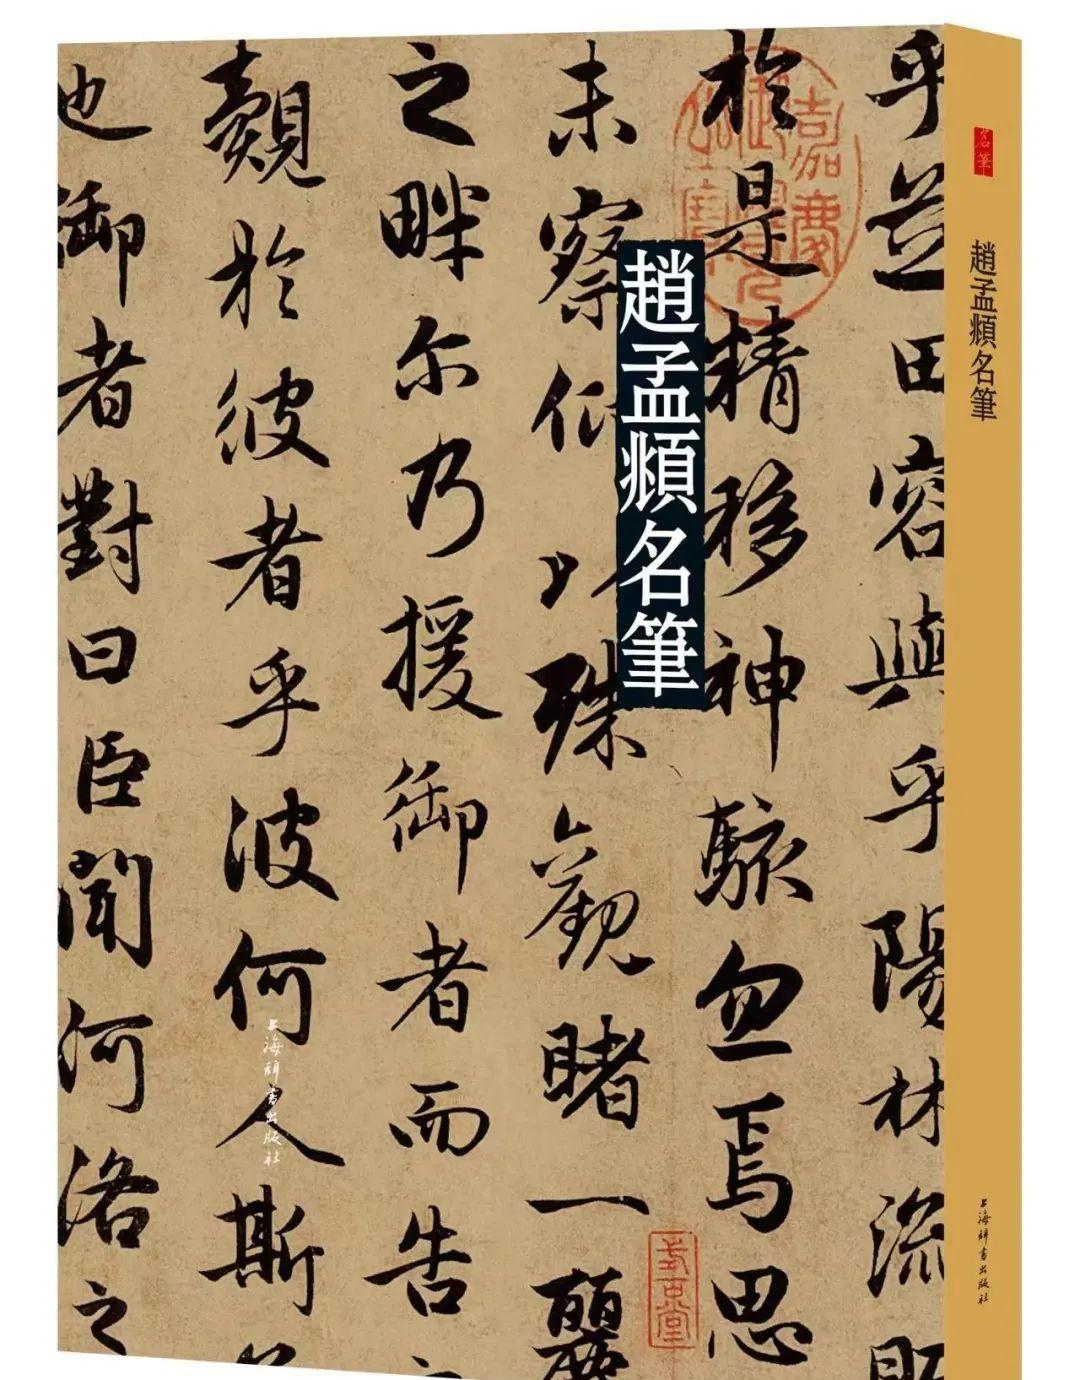 趙孟頫名筆
乎芝田容與乎陽林流眄
於是精移神駭忽焉思
未察仰以殊觀睹一麗
之畔尔乃援御者而告之
覿於彼者乎彼何人斯若
也御者對曰臣聞河洛之
上海辭書出版社
名筆
趙孟頫名筆
上海辭書出版社